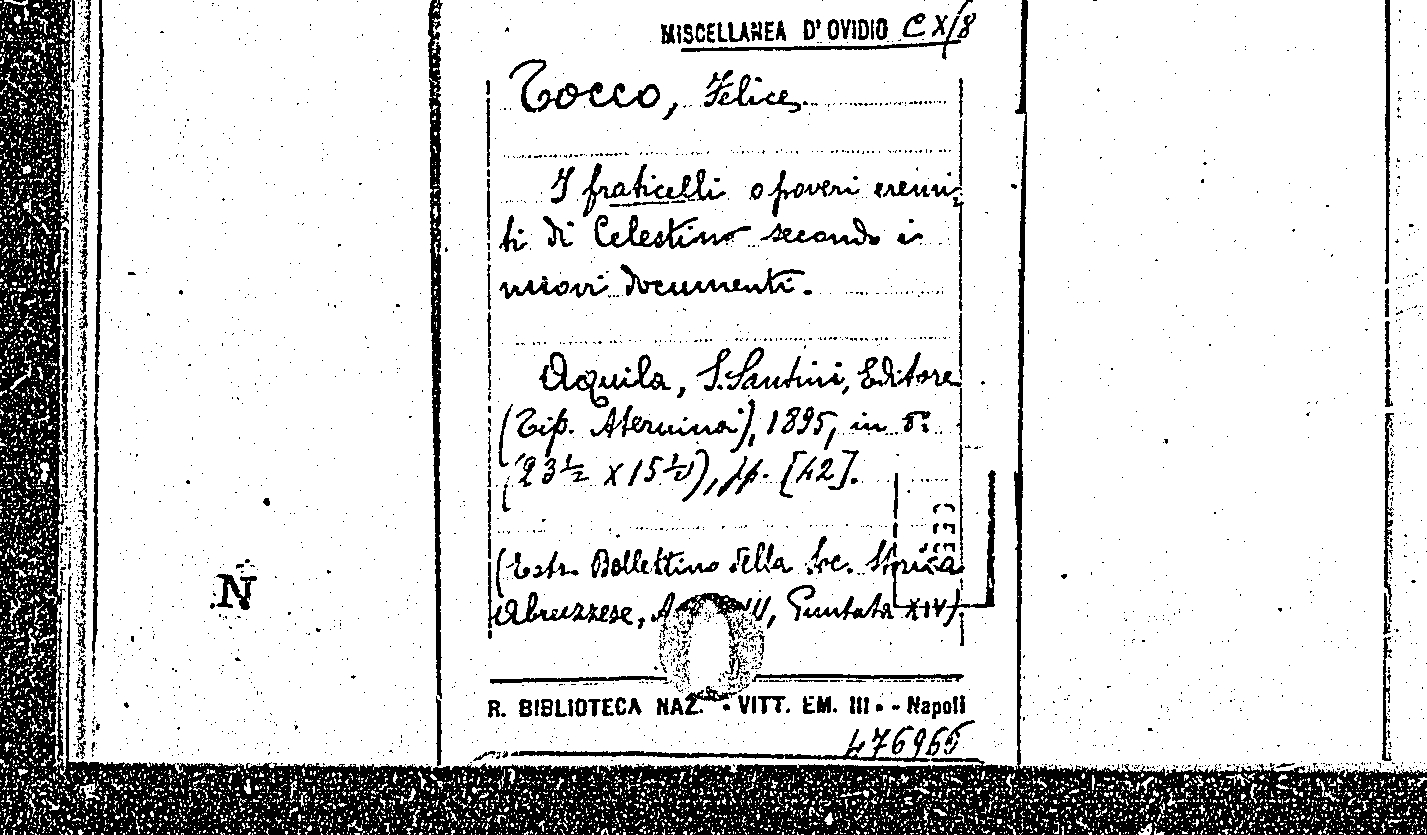 MISCELLANEA D'OVIDIO CX/8
Tocco, Felice.
I fraticelli o poveri eremi-
ti di Celestino secondo i
nuovi documenti.
Aquila, S. Santini, Editore
(Tip. Aternina), 1895, in 8º
(23½ x 15½), pp. [42].
(Estr. Bollettino della Soc. Storica
Abruzzese, Puntata XIV)
N
R. BIBLIOTECA NAZ. - VITT. EM. III - Napoli
476965